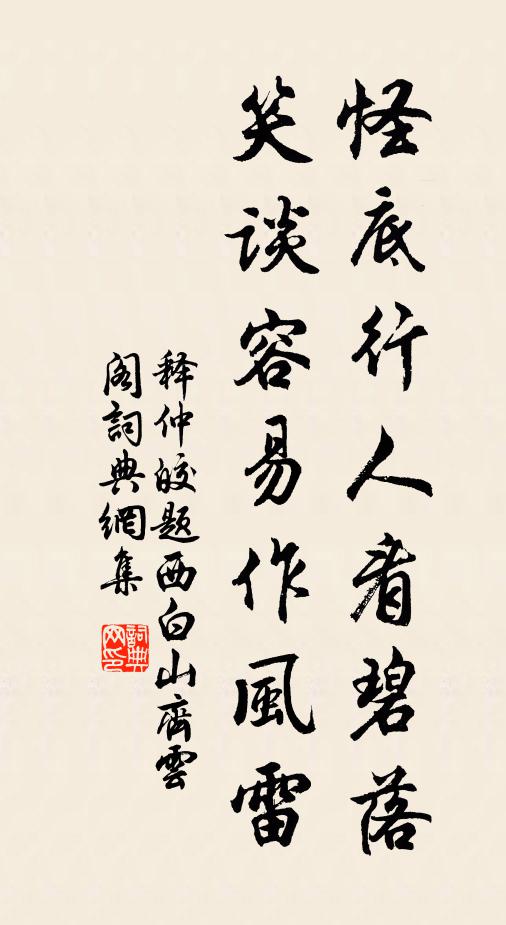 怪底行人看碧落
笑談容易作風雷
释仲皎题西白山齊雲
阁詞典網集
詞典網印